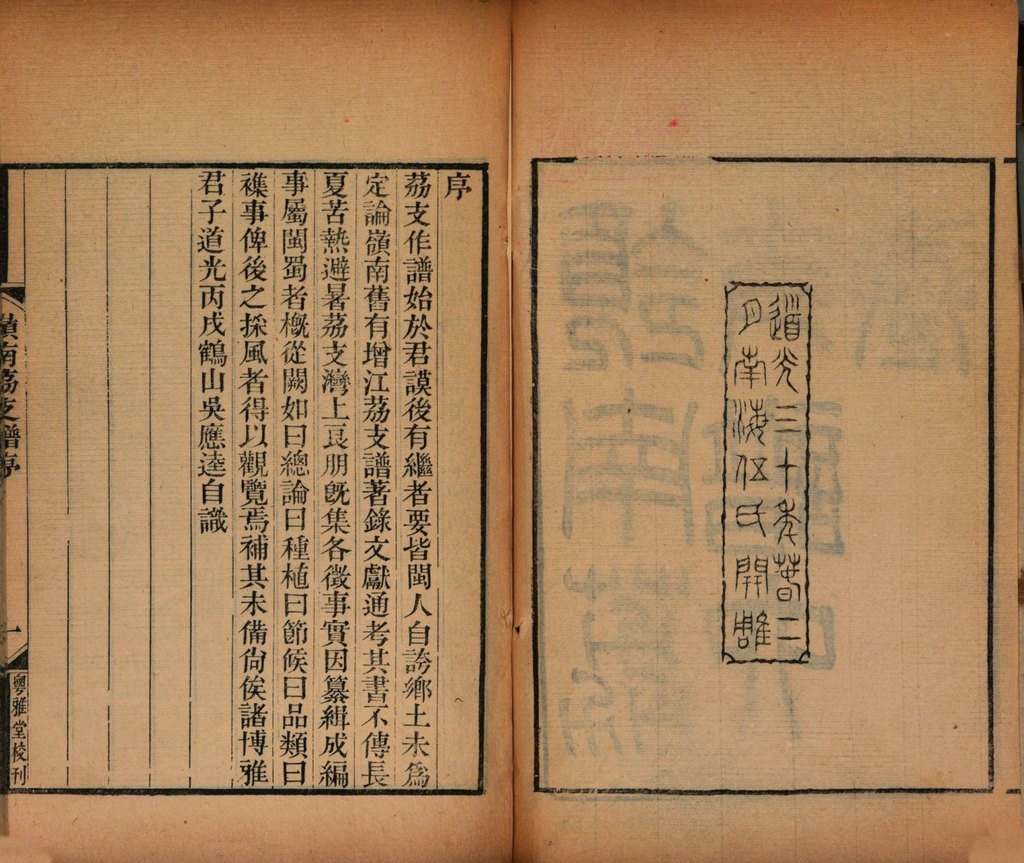 道光三十年春二
月南海伍氏開雕
序
荔支作譜始於君謨後有繼者要皆閩人自誇鄉土未爲
定論嶺南舊有增江荔支譜著錄文獻通考其書不傳長
夏苦熱避暑荔支灣上良朋旣集各徵事實因纂緝成編
事屬閩蜀者槪從闕如曰總論曰種植曰節候曰品類曰
襍事俾後之採風者得以觀覽焉補其未備尙俟諸博雅
君子道光丙戌鶴山吳應逵自識
嶺南荔支譜序
一
粵雅堂校刊